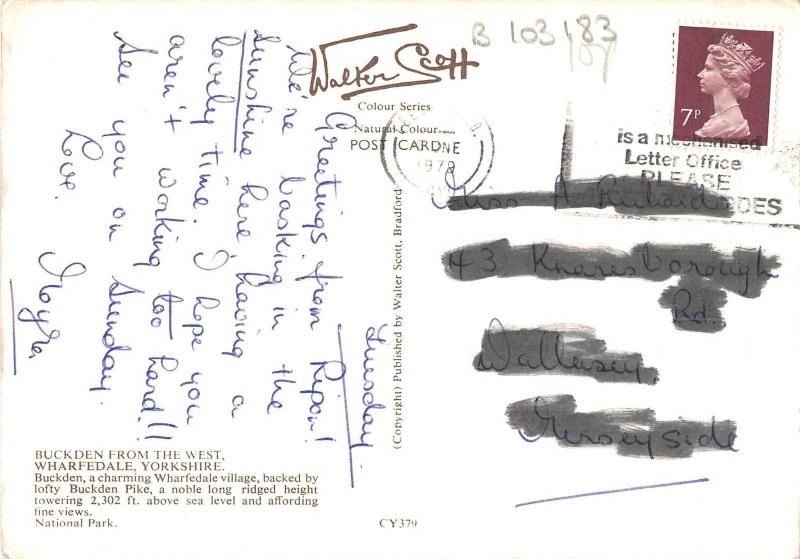 Tuesday.
Greetings from Ripon!
We're basking in the
sunshine here & having a
lovely time. I hope you
aren't working too hard!!
See you on Sunday.
Love,
Moyra.
Walter Scott
Colour Series
Natural Colour
POST CARD
BUCKDEN FROM THE WEST,
WHARFEDALE, YORKSHIRE.
Buckden, a charming Wharfedale village, backed by
lofty Buckden Pike, a noble long ridged height
towering 2,302 ft. above sea level and affording
fine views.
National Park.
(Copyright) Published by Walter Scott, Bradford
CY379
B 103183
7P
1979
is a mechanised
Letter Office
PLEASE
Miss A
43 Knaresborough
Rd.
Wallasey,
Merseyside